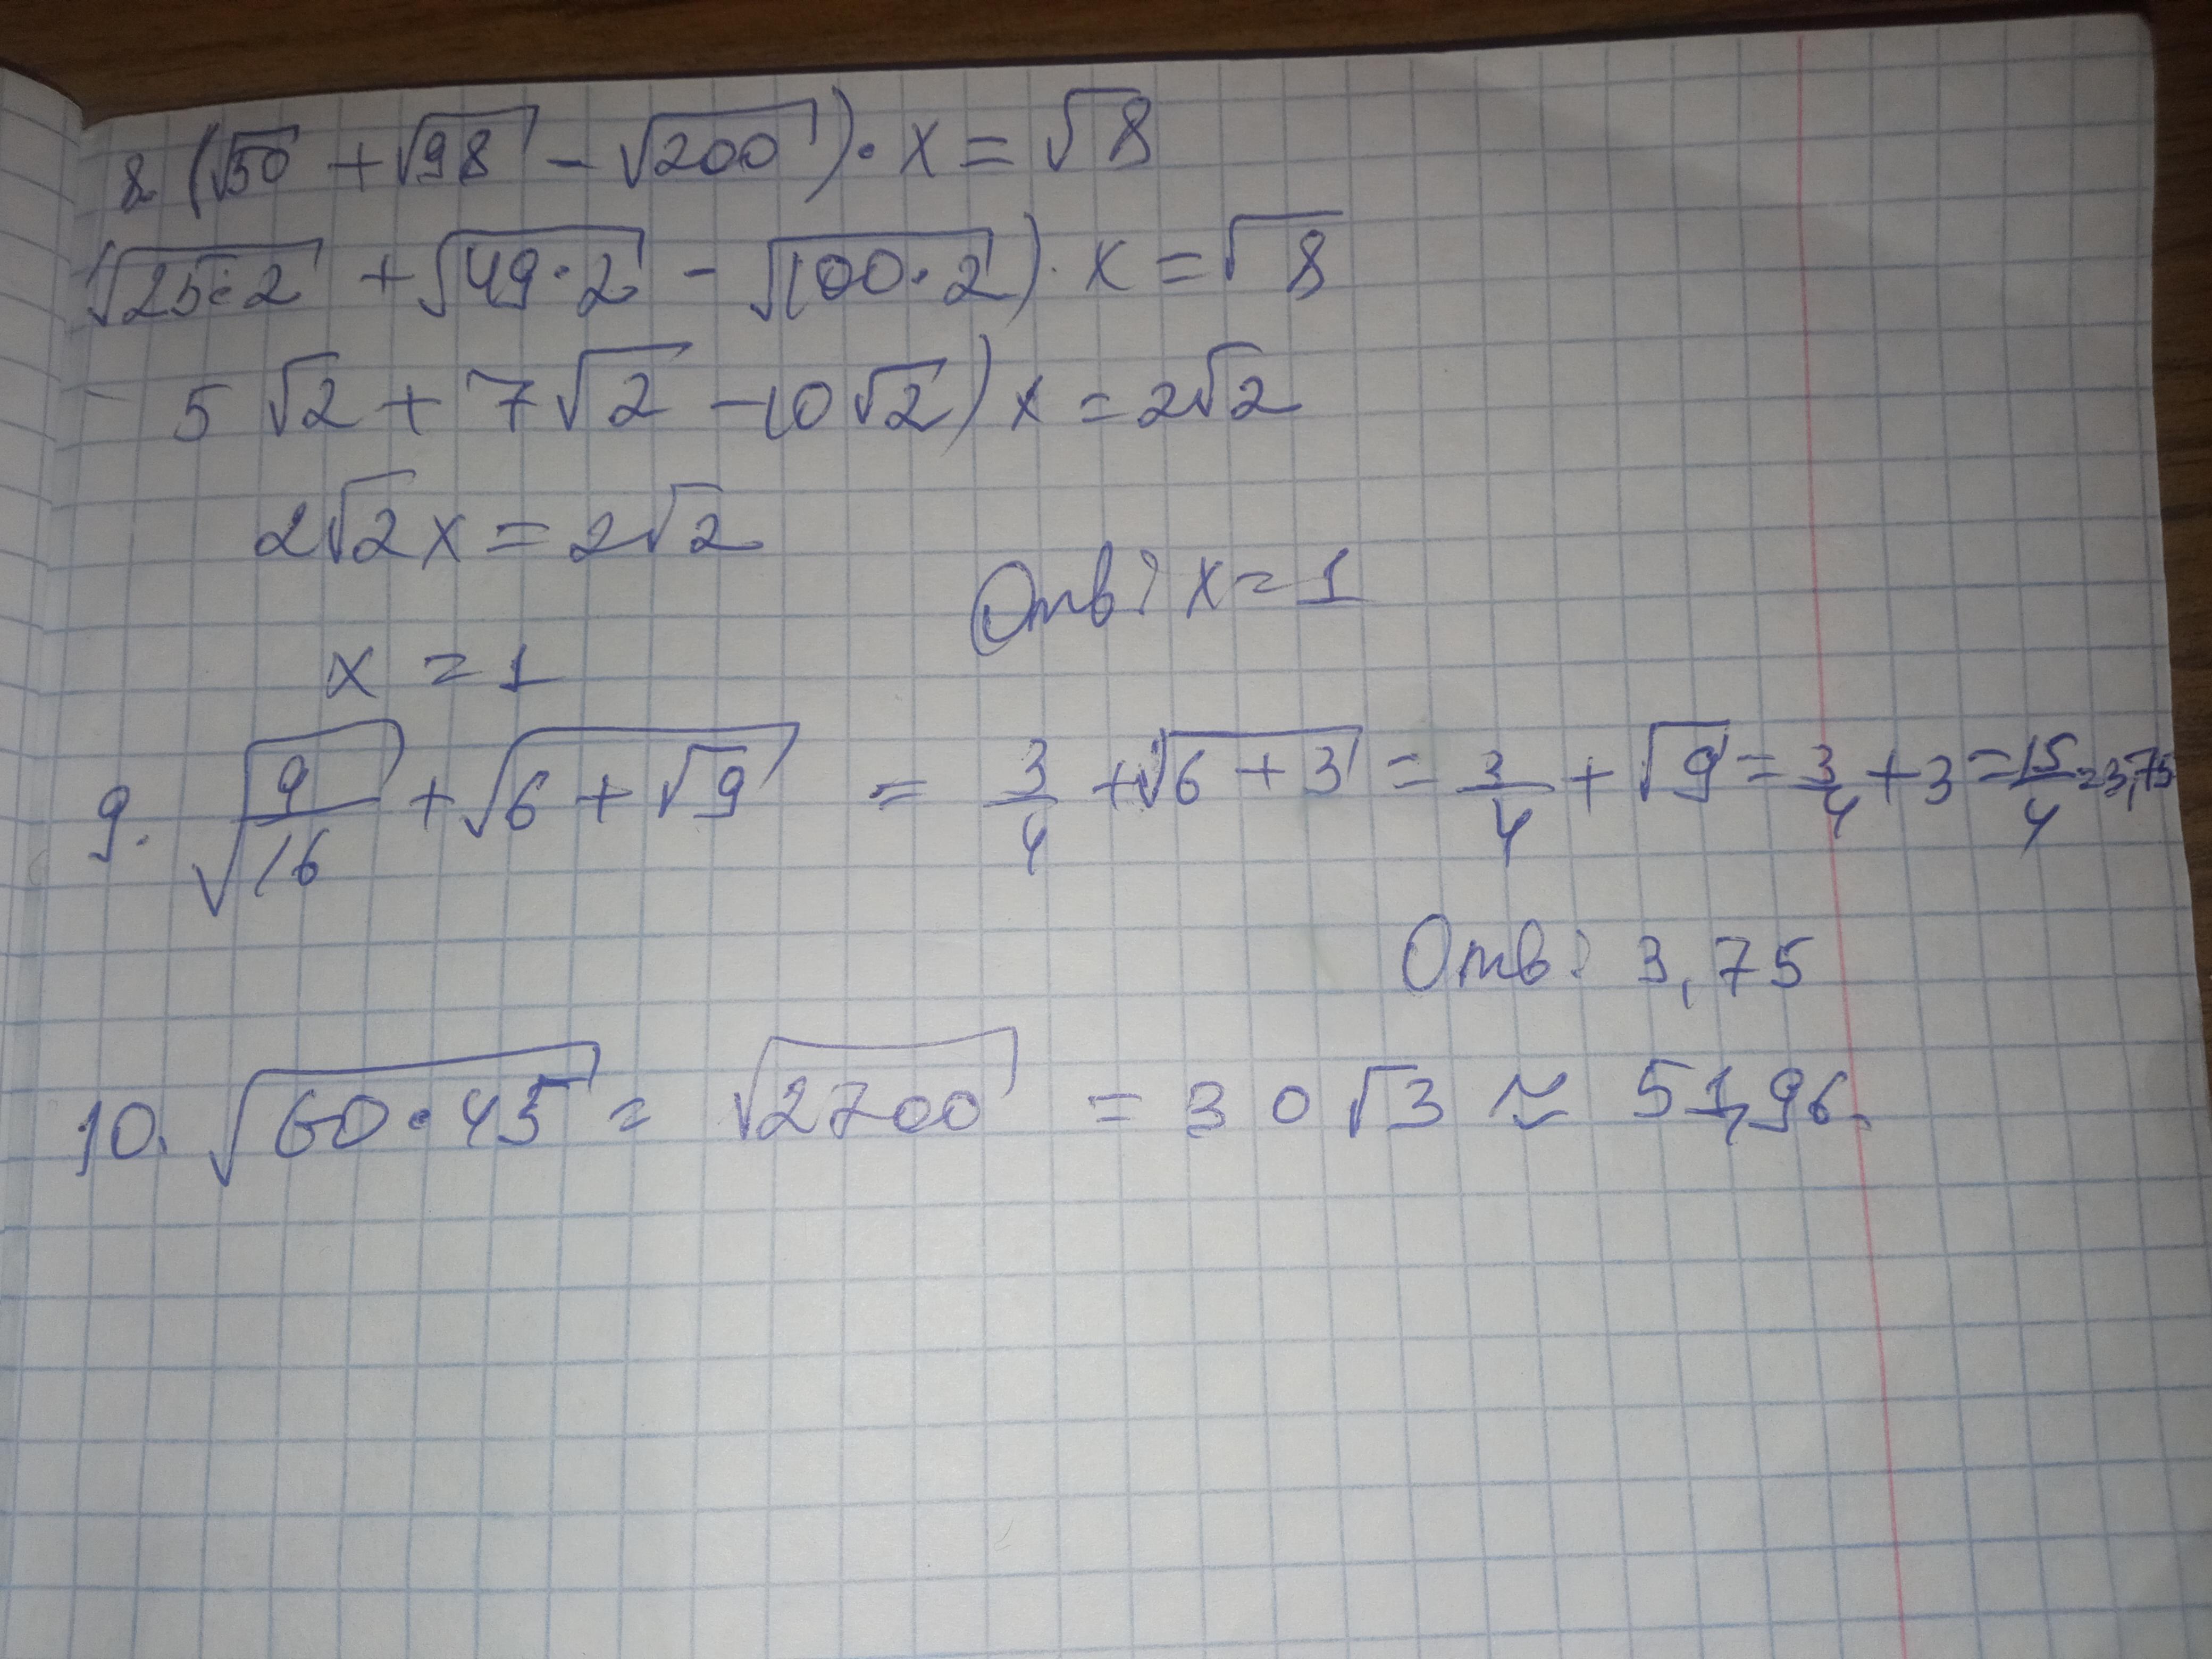 8 (√50 + √98 - √200) · x = √8
(√25·2 + √49·2 - √100·2) · x = √8
5√2 + 7√2 - 10√2) x = 2√2
2√2 x = 2√2
Отв: x = 1
x = 1
9. √9/16 + √6 + √9 = 3/4 + √6 + 3 = 3/4 + √9 = 3/4 + 3 = 15/4 = 3,75
Отв: 3,75
10. √60·45 = √2700 = 30√3 ≈ 51,96.